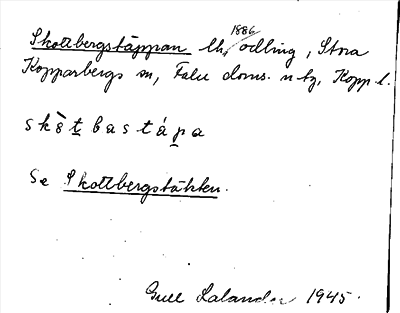 Skottbergstäppan lh, 1886 odling, Stora
Kopparbergs sn, Falu doms. n tg, Kopp. l.
skò̀t bastápa
Se Skottbergstäkten.
Gull Lalander 1945.